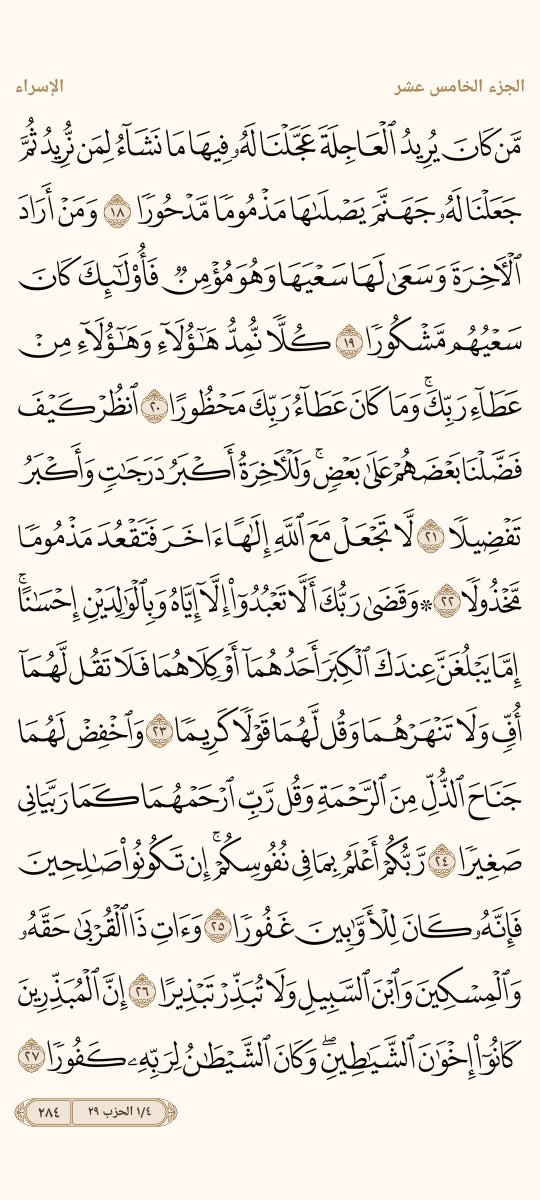 الجزء الخامس عشر
الإسراء
مَّن كَانَ يُرِيدُ ٱلْعَاجِلَةَ عَجَّلْنَا لَهُۥ فِيهَا مَا نَشَآءُ لِمَن نُّرِيدُ ثُمَّ
جَعَلْنَا لَهُۥ جَهَنَّمَ يَصْلَىٰهَا مَذْمُومًا مَّدْحُورًا ١٨ وَمَنْ أَرَادَ
ٱلْـَٔاخِرَةَ وَسَعَىٰ لَهَا سَعْيَهَا وَهُوَ مُؤْمِنٌ فَأُو۟لَـٰٓئِكَ كَانَ
سَعْيُهُم مَّشْكُورًا ١٩ كُلًّا نُّمِدُّ هَـٰٓؤُلَآءِ وَهَـٰٓؤُلَآءِ مِنْ
عَطَآءِ رَبِّكَ ۚ وَمَا كَانَ عَطَآءُ رَبِّكَ مَحْظُورًا ٢٠ ٱنظُرْ كَيْفَ
فَضَّلْنَا بَعْضَهُمْ عَلَىٰ بَعْضٍ ۚ وَلَلْـَٔاخِرَةُ أَكْبَرُ دَرَجَـٰتٍ وَأَكْبَرُ
تَفْضِيلًا ٢١ لَّا تَجْعَلْ مَعَ ٱللَّهِ إِلَـٰهًا ءَاخَرَ فَتَقْعُدَ مَذْمُومًا
مَّخْذُولًا ٢٢ ۞ وَقَضَىٰ رَبُّكَ أَلَّا تَعْبُدُوٓا۟ إِلَّآ إِيَّاهُ وَبِٱلْوَٰلِدَيْنِ إِحْسَـٰنًا ۚ
إِمَّا يَبْلُغَنَّ عِندَكَ ٱلْكِبَرَ أَحَدُهُمَآ أَوْ كِلَاهُمَا فَلَا تَقُل لَّهُمَآ
أُفٍّ وَلَا تَنْهَرْهُمَا وَقُل لَّهُمَا قَوْلًا كَرِيمًا ٢٣ وَٱخْفِضْ لَهُمَا
جَنَاحَ ٱلذُّلِّ مِنَ ٱلرَّحْمَةِ وَقُل رَّبِّ ٱرْحَمْهُمَا كَمَا رَبَّيَانِى
صَغِيرًا ٢٤ رَّبُّكُمْ أَعْلَمُ بِمَا فِى نُفُوسِكُمْ ۚ إِن تَكُونُوا۟ صَـٰلِحِينَ
فَإِنَّهُۥ كَانَ لِلْأَوَّٰبِينَ غَفُورًا ٢٥ وَءَاتِ ذَا ٱلْقُرْبَىٰ حَقَّهُۥ
وَٱلْمِسْكِينَ وَٱبْنَ ٱلسَّبِيلِ وَلَا تُبَذِّرْ تَبْذِيرًا ٢٦ إِنَّ ٱلْمُبَذِّرِينَ
كَانُوٓا۟ إِخْوَٰنَ ٱلشَّيَـٰطِينِ ۖ وَكَانَ ٱلشَّيْطَـٰنُ لِرَبِّهِۦ كَفُورًا ٢٧
١/٤ الحزب ٢٩
٢٨٤